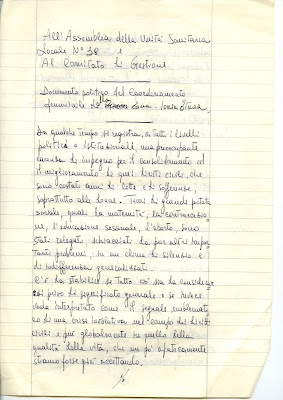 All'Assemblea della Unità Sanitaria
Locale N° 38 e
Al Comitato di Gestione
Documento politico del Coordinamento
femminile della Zona
Da qualche tempo si registra, a tutti i livelli
politici e istituzionali, una preoccupante
caduta di impegno per il consolidamento ed
il miglioramento di quei diritti civili, che
sono costati anni di lotte e di sofferenze
soprattutto alle donne. Temi di grande portata
sociale, quali la maternità, la contraccezio
ne, l'educazione sessuale, l'aborto, sono
stati relegati, schiacciati da più altri impor
tanti problemi, in un clima di silenzio e
di indifferenza generalizzati.
C'è da stabilire se tutto ciò sia da considerar
si privo di significato generale o se invece
vada interpretato come il segnale
co di una crisi involutiva nel campo dei diritti
civili e più globalmente in quello della
qualità della vita, che un po' apaticamente
stiamo forse già accettando.